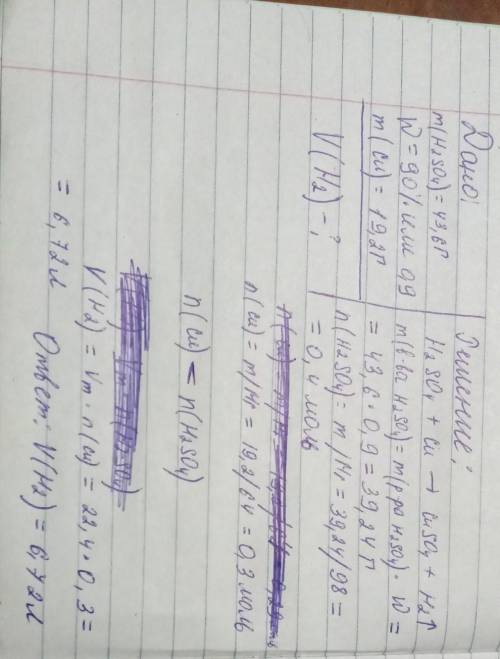 Дано:
m(H2SO4) = 43,6г
W = 90% или 0,9
m(Cu) = 19,2г
V(H2) - ?
Решение:
H2SO4 + Cu → CuSO4 + H2↑
m(в-ва H2SO4) = m(р-ра H2SO4) · W =
= 43,6 · 0,9 = 39,24г
n(H2SO4) = m/Mr = 39,24/98 =
= 0,4 моль
n(Cu) = m/Mr = 19,2/64 = 0,3 моль
n(Cu) < n(H2SO4)
V(H2) = Vm · n(Cu) = 22,4 · 0,3 =
= 6,72л Ответ: V(H2) = 6,72л